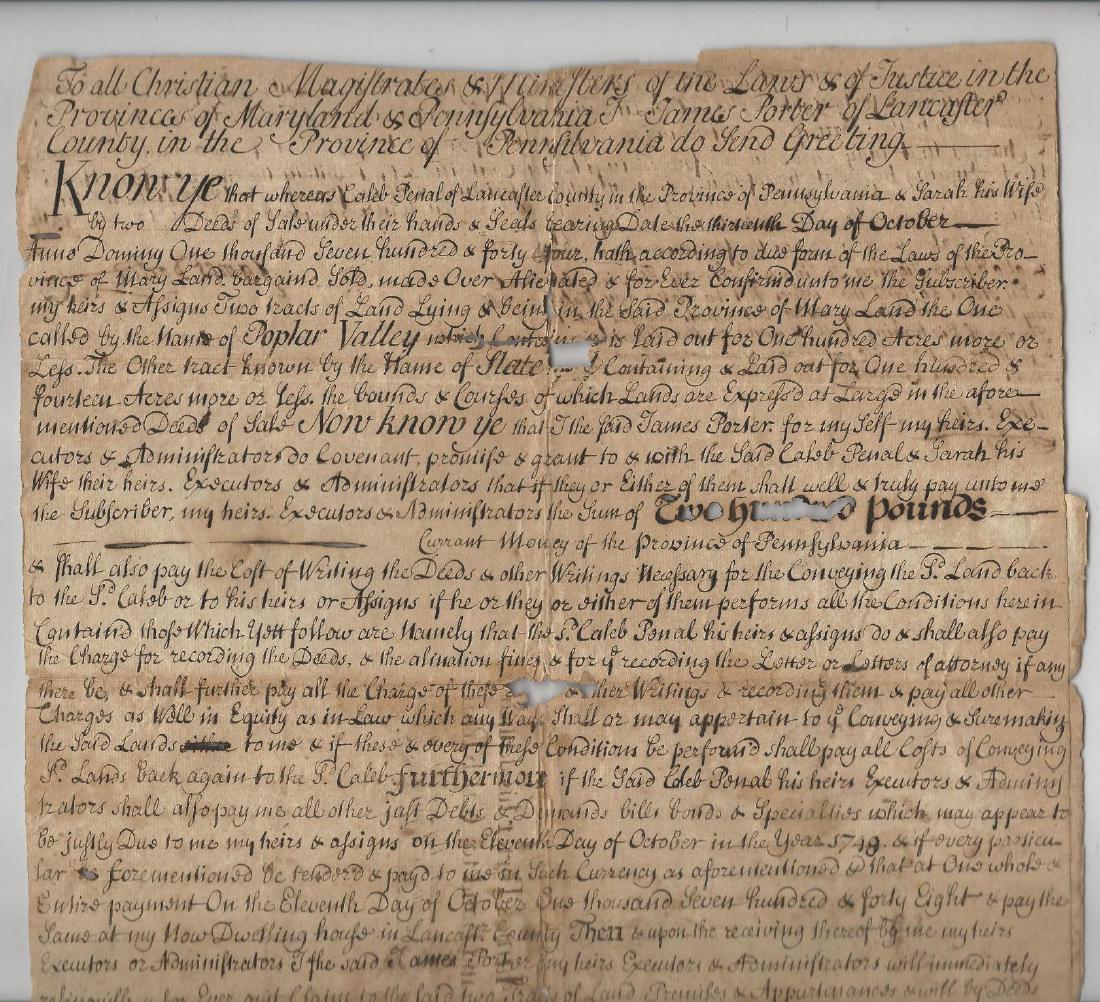 To all Christian Magistrates & Ministers of the Laws & of Justice in the
Provinces of Maryland & Pennsylvania I James Porter of Lancaster
County, in the Province of Pennsilvania do Send Greeting
Know ye that whereas Caleb Penal of Lancaster County in the Province of Pennsylvania & Sarah his Wife
by two Deeds of Sale under their hands & Seals bearing Date the thirteenth Day of October
Anno Dominy One thousand Seven hundred & forty four, hath according to due form of the Laws of the Pro-
vince of Mary Land. bargaind, Sold, made Over Alienated & for Ever Confirmd unto me the Subscriber.
my heirs & Assigns Two tracts of Land Lying & being in the Said Province of Mary Land the One
called by the Name of Poplar Valley which is Laid out for One hundred Acres more or
Less. The Other tract known by the Name of Slate Containing & Laid out for One hundred &
fourteen Acres more or less. the bounds & Courses of which Lands are Express'd at Large in the afore
mentioned Deeds of Sale Now know ye that I the said James Porter. for my Self my heirs. Exe-
cutors & Administrators do Covenant, promise & grant to & with the Said Caleb Penal & Sarah his
Wife their heirs. Executors & Administrators that if they or Either of them shall well & truly pay unto me
the Subscriber, my heirs. Executors & Administrators the Sum of Two hundred pounds
Currant Money of the Province of Pennsylvania
& Shall also pay the Cost of Writing the Deeds & other Writings Necessary for the Conveying the Sd. Land back
to the Sd. Caleb or to his heirs or Assigns if he or they or either of them performs all the Conditions herein
Containd those Which Yett follow are Namely that the sd. Caleb Penal his heirs & assigns do & shall also pay
the Charge for recording the Deeds. & the alination fines & for ye recording the Letter or Letters of attorney if any
there be, & shall further pay all the Charge of these & other Writings & recording them & pay all other
Charges as Well in Equity as in Law which any Ways Shall or may appertain to ye Conveying & Suremaking
the Said Lands to me & if these & every of these Conditions be perform'd shall pay all Costs of Conveying
Sd. Lands back again to the Sd. Caleb. furthermore if the Said Caleb Penal his heirs Executors & Adminis
trators shall also pay me all other just Debts & Demands bills bonds & Specialties which may appear to
be justly Due to me my heirs & assigns on the Eleventh Day of October in the Year & if every particu
lar forementioned be tenderd & payd to me in Such Currency as aforementioned & that at One whole &
Entire payment On the Eleventh Day of October One thousand Seven hundred & forty Eight & pay the
Same at my Now Dwelling house in Lancastr. County Then & upon the receiving thereof by me my heirs
Executors or Administrators I the said James Porter my heirs Executors & Administrators will immediately
for Ever quit Claim to the said two Tracts of Land Premises & Appurtinances & will by Deeds